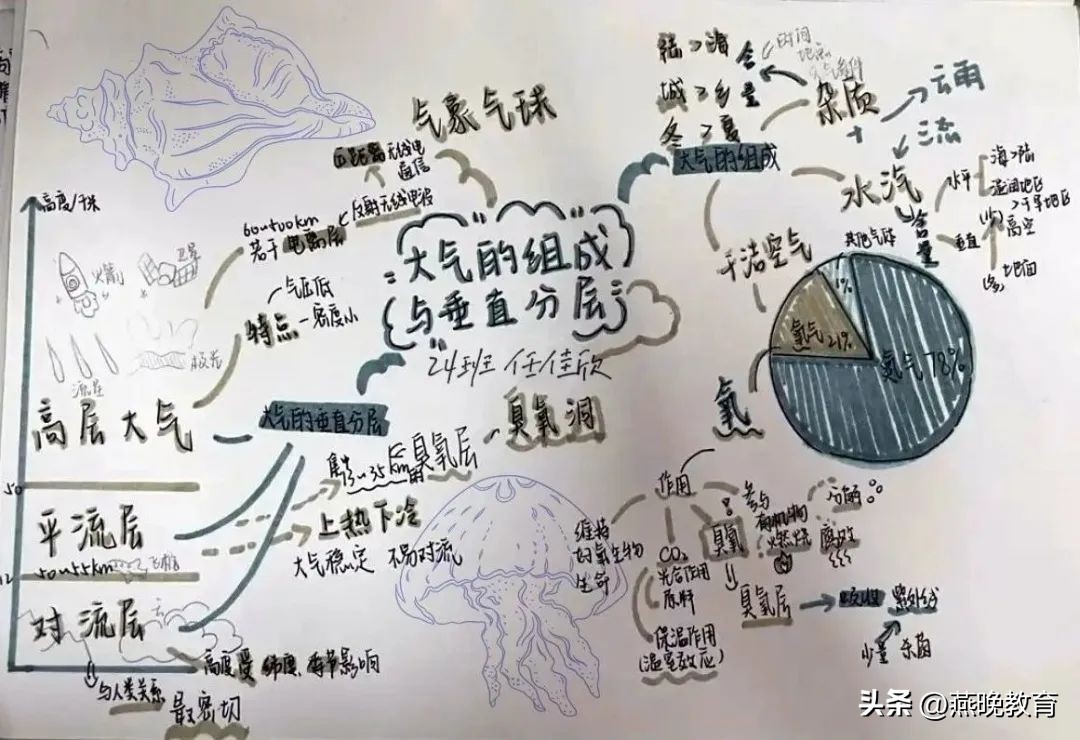 大气的组成
与垂直分层
24班 任佳欣
气象气球
远距离无线电
通信
反射无线电波
60~500km
若干电离层
特点
气压低
密度小
高度/千米
火箭
卫星
流星
极光
高层大气
大气的垂直分层
50
平流层
50~55km
飞机
12
对流层
云
高度受纬度、季节影响
与人类关系
最密切
臭氧层
臭氧洞
上热下冷
大气稳定 不易对流
陆>海
城>乡
冬>夏
含量
时间
地点
天气条件
杂质
+
云雨
三流
大气的组成
水汽
含量
水平
海>陆
湿润地区
>干旱地区
垂直
(少)
高空
(多)
地面
干洁空气
其他气体
1%
氧气 21%
氮气 78%
氧
作用
维持
好氧生物
生命
CO₂
光合作用
原料
保温作用
(温室效应)
臭氧
臭氧层
吸收
紫外线
少量
杀菌
参与
有机物
燃烧
分解
腐败
头条 @燕晚教育